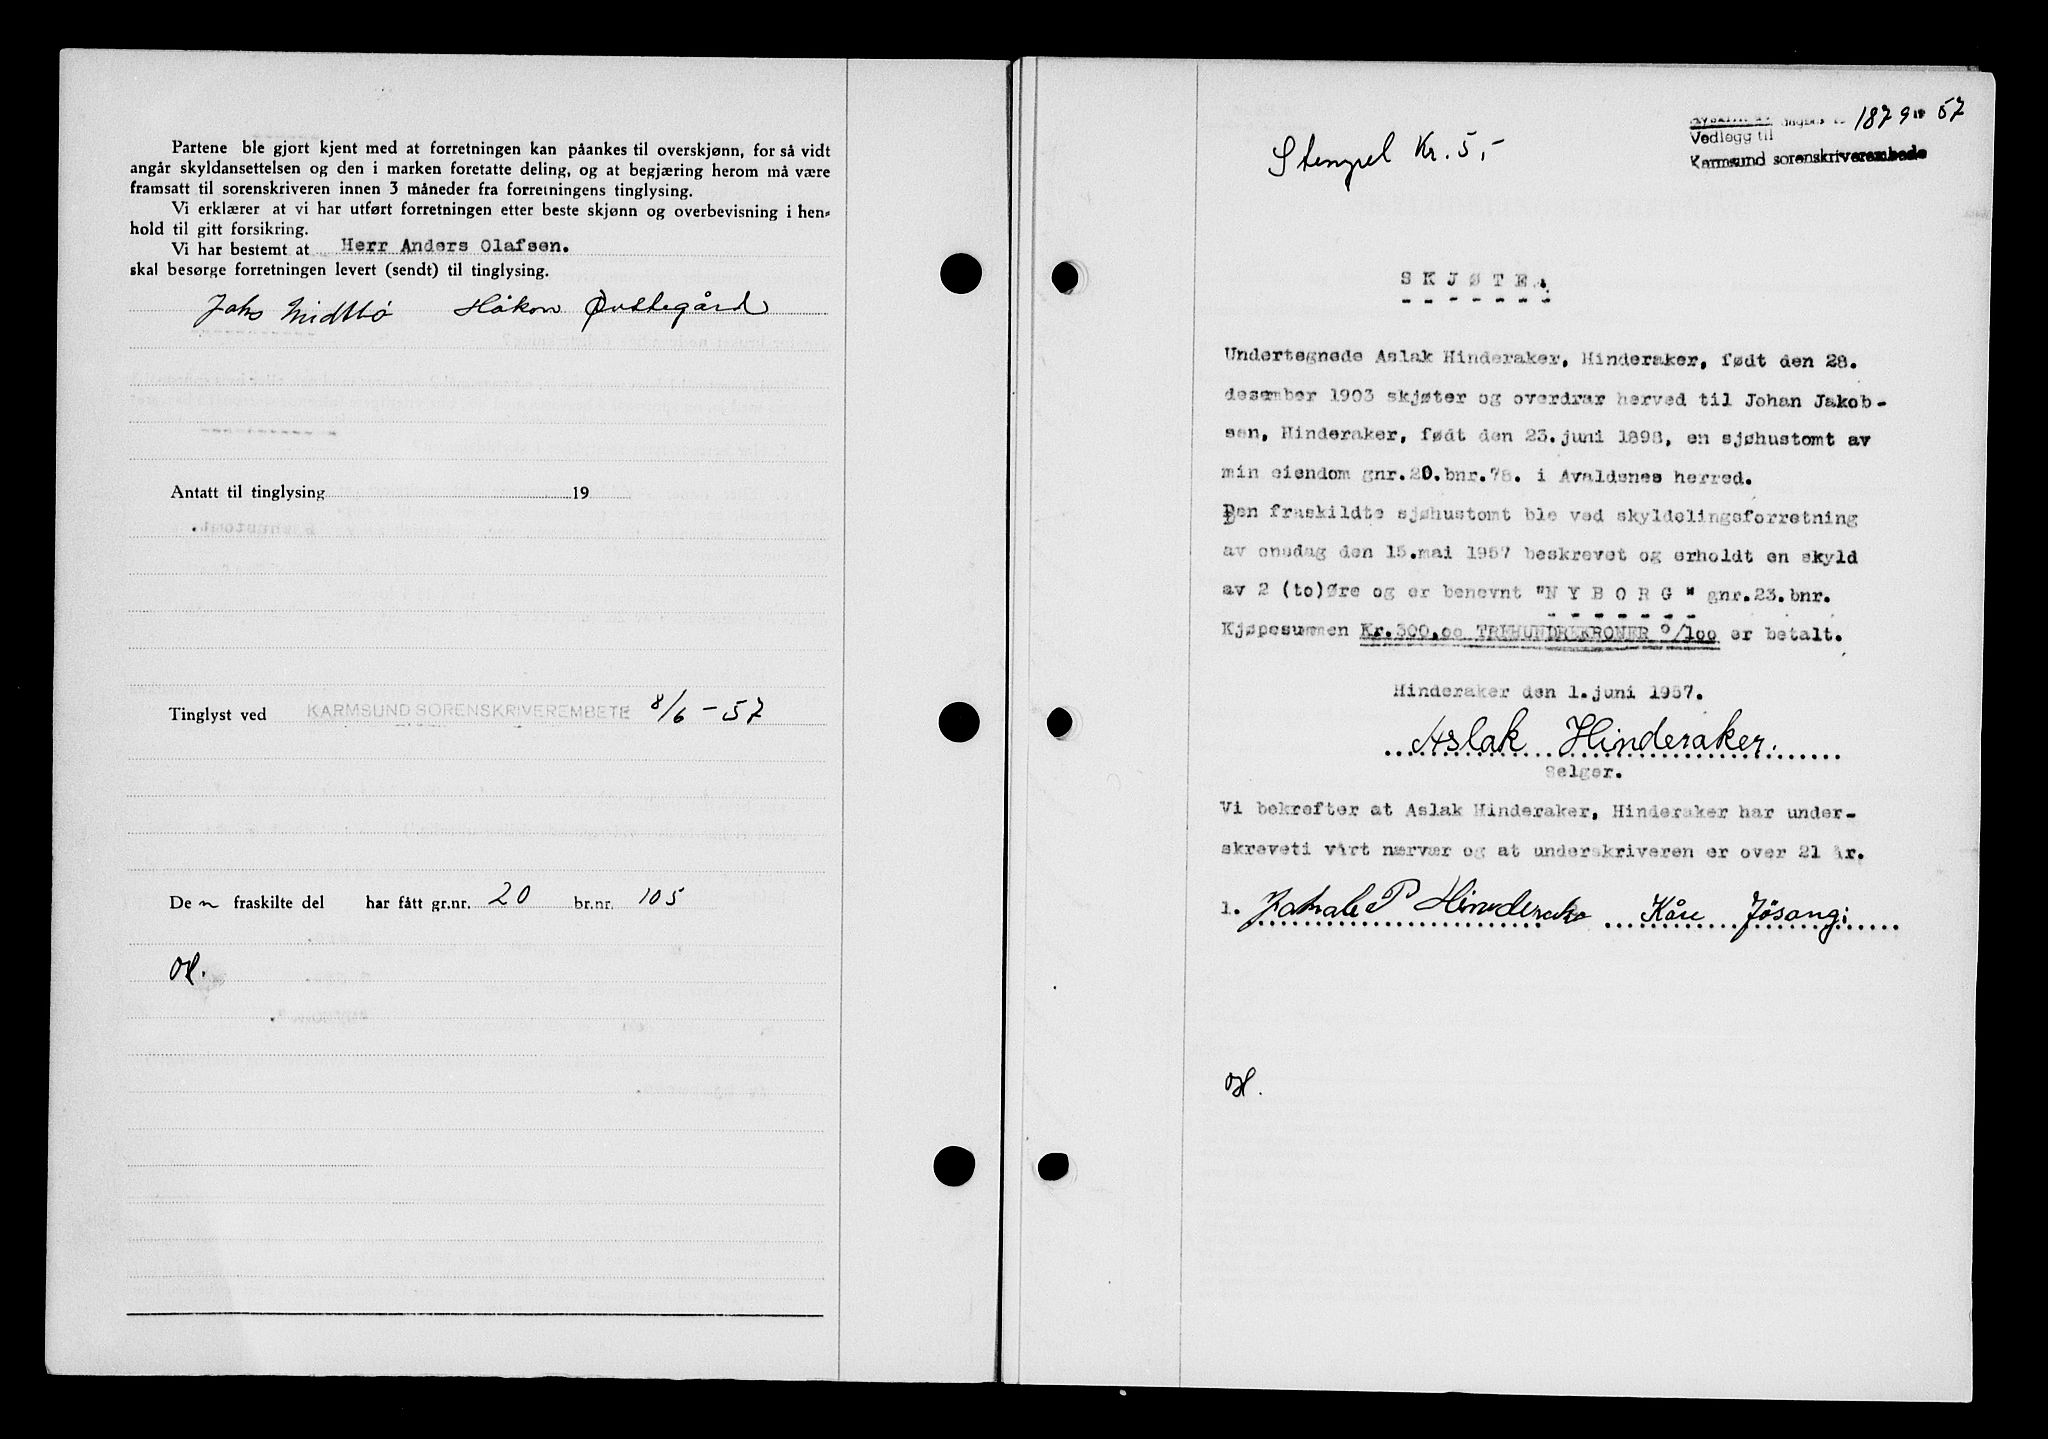 Partene ble gjort kjent med at forretningen kan påankes til overskjønn, for så vidt
angår skyldansettelsen og den i marken foretatte deling, og at begjæring herom må være
framsatt til sorenskriveren innen 3 måneder fra forretningens tinglysing.
Vi erklærer at vi har utført forretningen etter beste skjønn og overbevisning i hen-
hold til gitt forsikring.
Vi har bestemt at Herr Anders Olafsen.
skal besørge forretningen levert (sendt) til tinglysing.
Johs Midtbø Håkon Østlegård
Antatt til tinglysing 19
Tinglyst ved KARMSUND SORENSKRIVEREMBETE 8/6 - 57
De n fraskilte del har fått gr.nr. 20 br.nr. 105
1879 19 57
Vedlegg til
Karmsund sorenskriverembede
Stempel Kr. 5,-
SKJØTE.
Undertegnede Aslak Hinderaker, Hinderaker, født den 28.
desember 1903 skjøter og overdrar herved til Johan Jakob-
sen, Hinderaker, født den 23.juni 1898, en sjøhustomt av
min eiendom gnr.20.bnr.78. i Avaldsnes herred.
Den fraskildte sjøhustomt ble ved skyldelingsforretning
av onsdag den 15.mai 1957 beskrevet og erholdt en skyld
av 2 (to)Øre og er benevnt "N Y B O R G " gnr.23.bnr.
Kjøpesummen Kr.300,oo TREHUNDREKRONER o/1oo er betalt.
Hinderaker den 1.juni 1957.
Aslak Hinderaker.
Selger.
Vi bekrefter at Aslak Hinderaker, Hinderaker har under-
skreveti vårt nærvær og at underskriveren er over 21 år.
1. P Hinderaker Kåre Jøsang